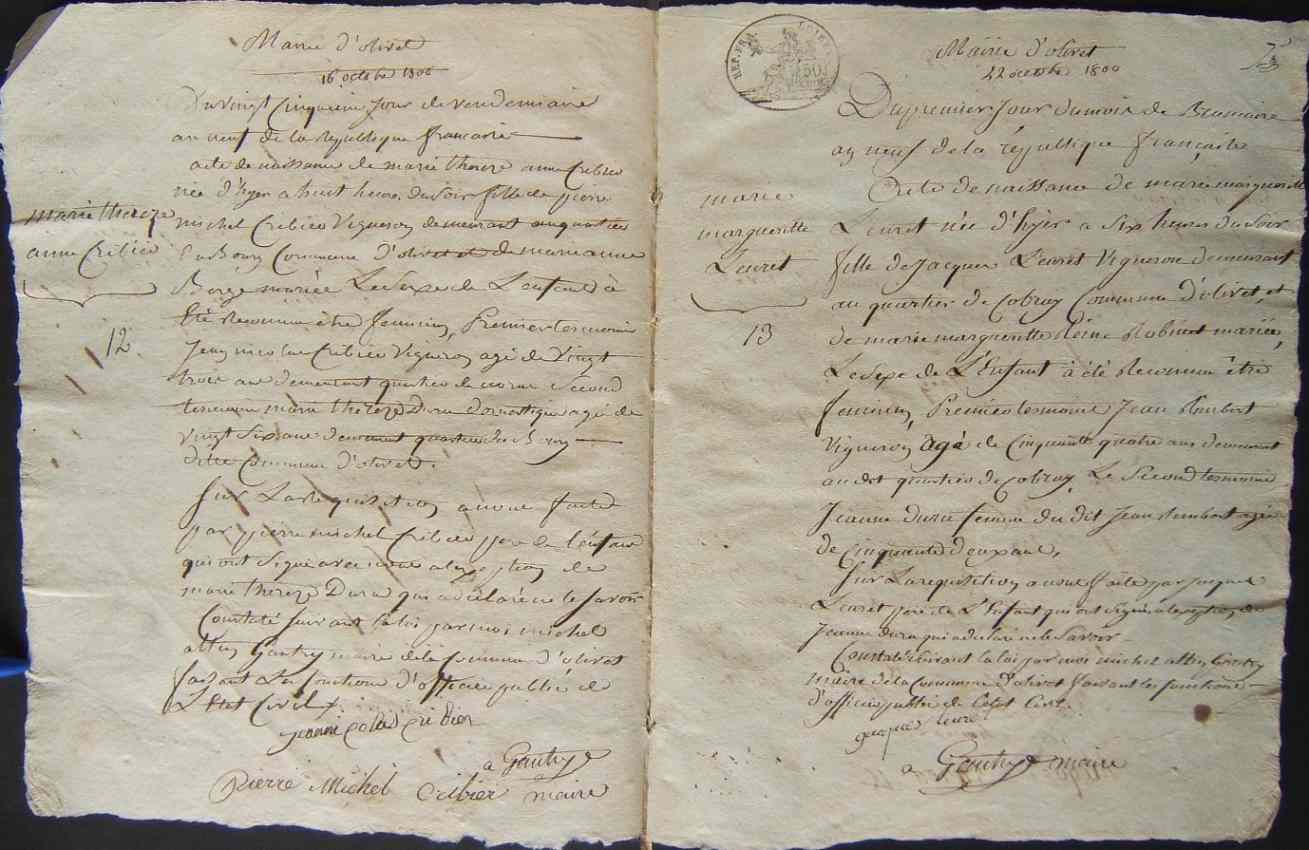 Mairie d'olivet
16 octobre 1800
Du vingt Cinquieme Jour de vendemiaire
an neuf de la Republique francaise
acte de naissance de marie thereze anne Cribier
née d'hyer a huit heures du soir fille de pierre
michel Cribier Vigneron demeurant au quartier
Du Bourg Commune d'olivet et de marie anne
mariée Le Sexe de L'enfant à
été Reconnu être feminin, Premier temoin
Jean nicolas Cribier Vigneron agé de Vingt
trois ans demeurant quartier de Second
temoin marie thereze Dura Domestique agé de
vingt Six ans demeurant quartier du Bourg
ditte Commune d'olivet.
Sur La requisition a nous faite
par pierre michel Cribier pere de l'enfant
qui ont Signé avec nous a l'exception de
marie thereze Dura qui a declaré ne le savoir
Constaté suivant la loi par moi michel
Gautry maire de la Commune d'olivet
faisant Les fonctions d'officier public de
L'Etat Civil
marie thereze
anne Cribier
12.
cribier
a Gautry
Pierre Michel cribier maire
REP. FRA.
Mairie d'olivet
22 octobre 1800
Du premier Jour du mois de Brumaire
an neuf de la république française
Acte de naissance de marie margueritte
Leuret née d'hyer a six heures du Soir
fille de Jacques Leuret Vigneron demeurant
au quartier de Cobray Commune d'olivet, et
de marie margueritte Reine Robinet mariée,
Le Sexe de L'Enfant à été Reconnu être
feminin, Premier temoin Jean Rombert
Vigneron agé de Cinquante quatre ans demeurant
au dit quartier de Cobray, Le Second temoin
Jeanne dura femme du dit Jean Rombert agée
de Cinquante deux ans,
Sur La requisition a nous faite par Jacques
Leuret pere de L'Enfant qui ont signé a l'exception de
Jeanne dura qui a declaré ne le Savoir
Constaté suivant la loi par moi michel Gautry
maire de la Commune d'olivet faisant les fonctions
d'officier public de L'etat Civil.
marie
margueritte
Leuret
13
leuret
a Gautry maire